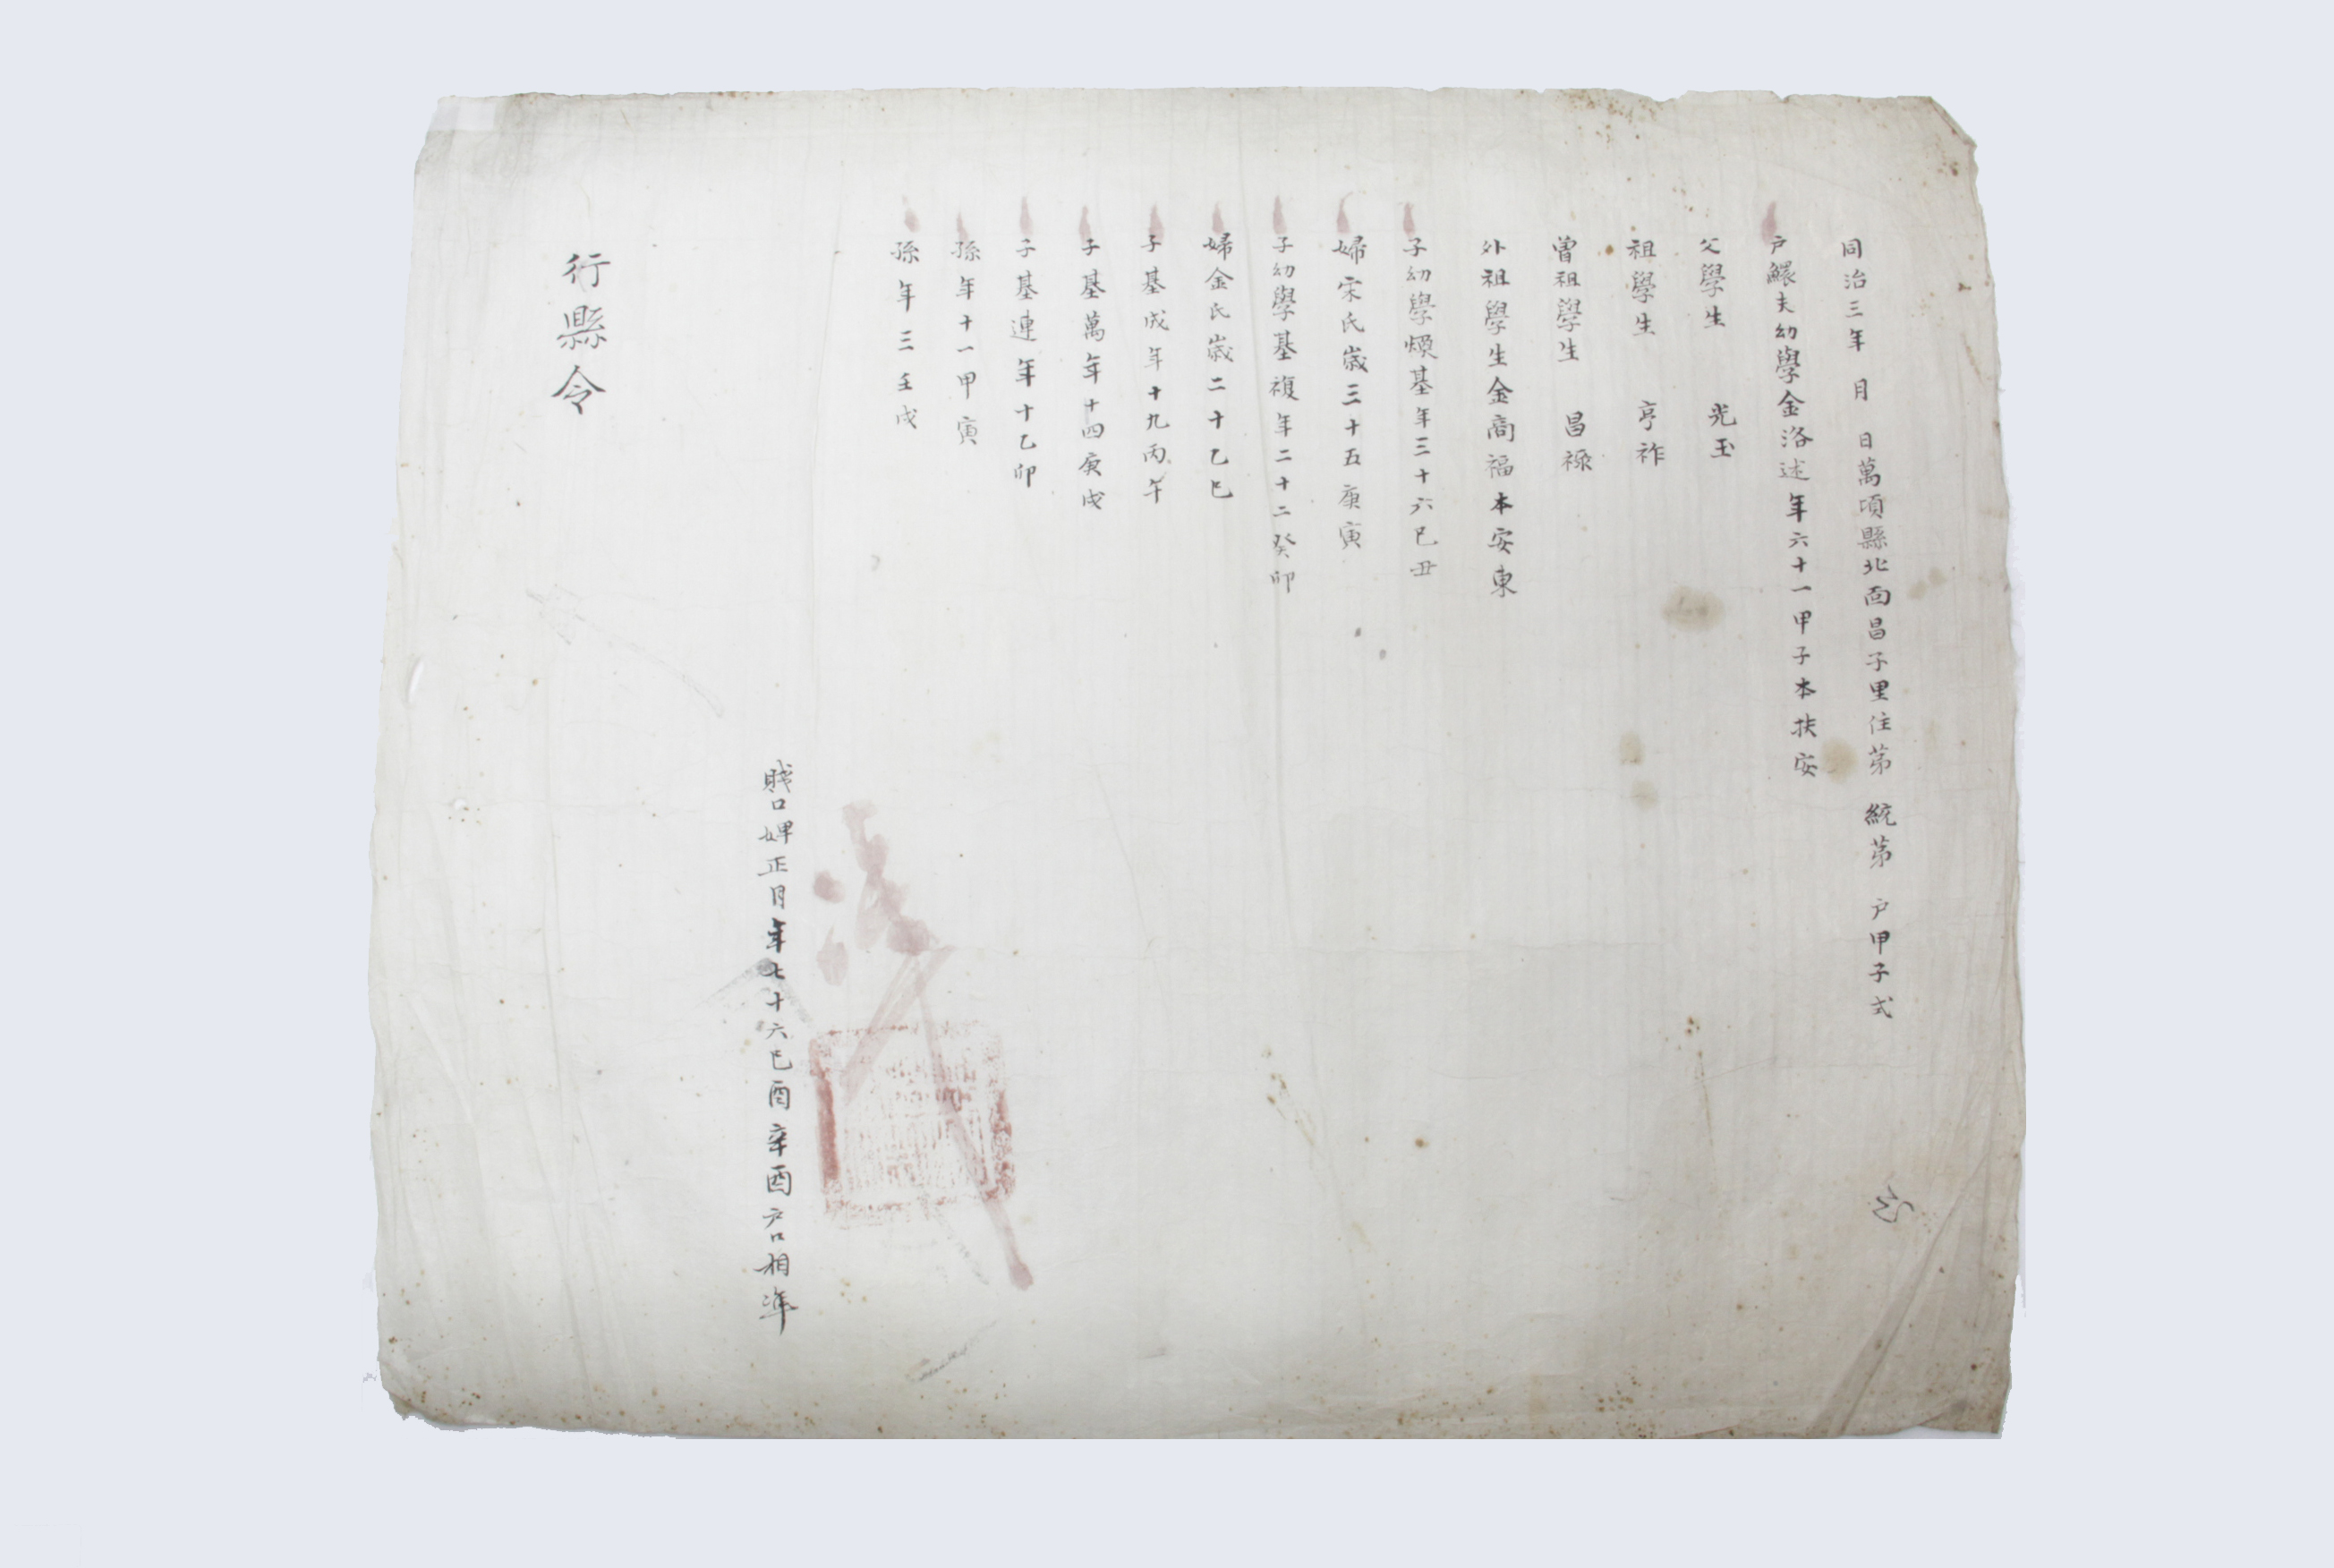 同治三年 月 日萬項縣北面昌子里住第 統第 户甲子式
户鰥夫幼學金洛述年六十一甲子本扶安
父學生 光玉
祖學生 亨祚
曾祖學生 昌祿
外祖學生金商福本安東
子幼學煥基年三十六己丑
婦宋氏歲三十五庚寅
子幼學基複年二十二癸卯
婦金氏歲二十乙巳
子基成年十九丙午
子基萬年十四庚戌
子基連年十乙卯
孫年十一甲寅
孫年三壬戌
賎口婢正月年七十六己酉辛酉户口相準
行縣令